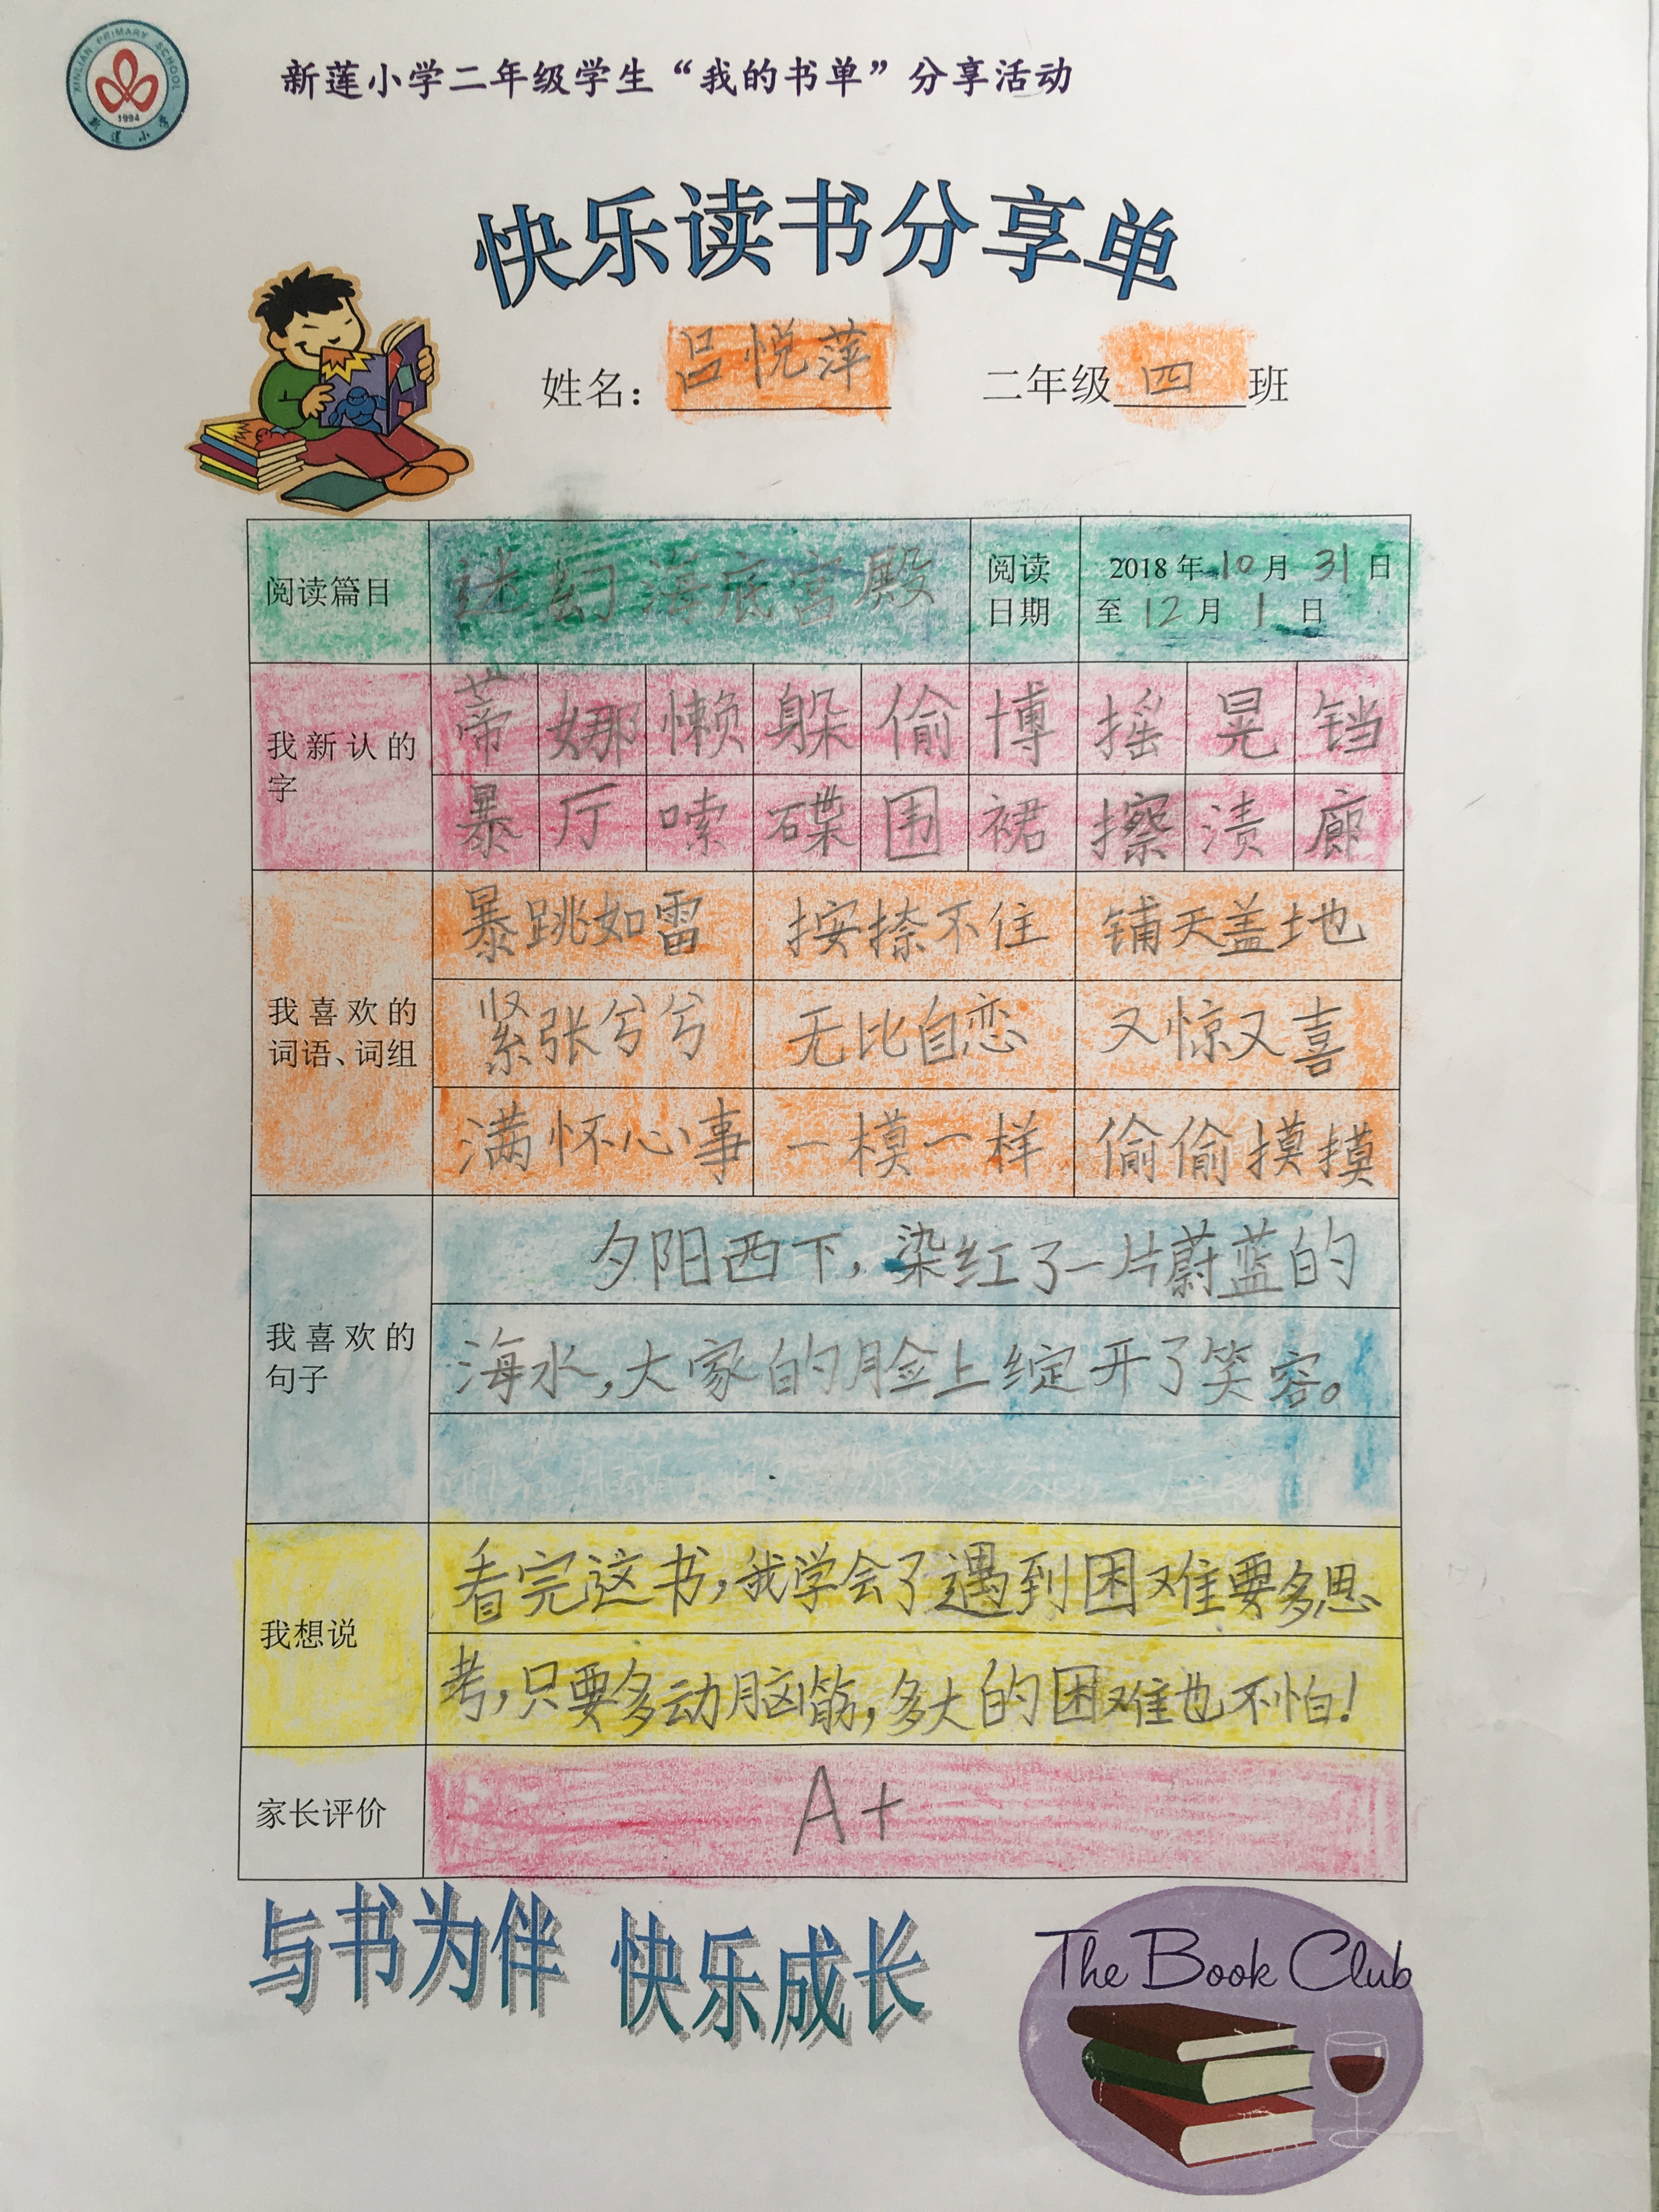 XINLIAN PRIMARY SCHOOL
1994
新莲小学
新莲小学二年级学生“我的书单”分享活动
快乐读书分享单
姓名：吕悦萍 二年级四班
阅读篇目 迷幻海底宫殿 阅读日期 2018年10月31日至12月1日
我新认的字
蒂 娜 懒 躲 偷 博 摇 晃 铛
暴 厅 嗦 碟 围 裙 擦 渍 廊
我喜欢的词语、词组
暴跳如雷 按捺不住 铺天盖地
紧张兮兮 无比自恋 又惊又喜
满怀心事 一模一样 偷偷摸摸
我喜欢的句子
夕阳西下，染红了一片蔚蓝的
海水，大家的脸上绽开了笑容。
我想说
看完这书，我学会了遇到困难要多思
考，只要多动脑筋，多大的困难也不怕！
家长评价 A+
与书为伴 快乐成长
The Book Club